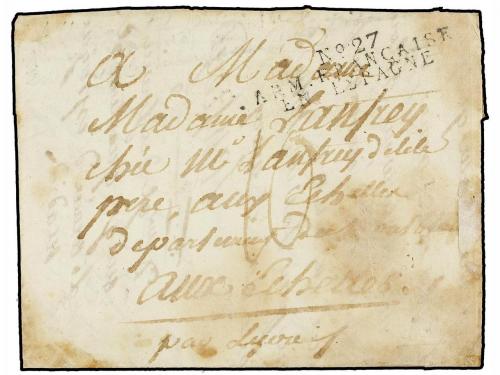 No 27
ARM. FRANÇAISE
EN ESPAGNE
a Madame
Madame Lanfrey
chéz Mr Lanfrey
pere aux Echelles
departement
aux Echelles
par